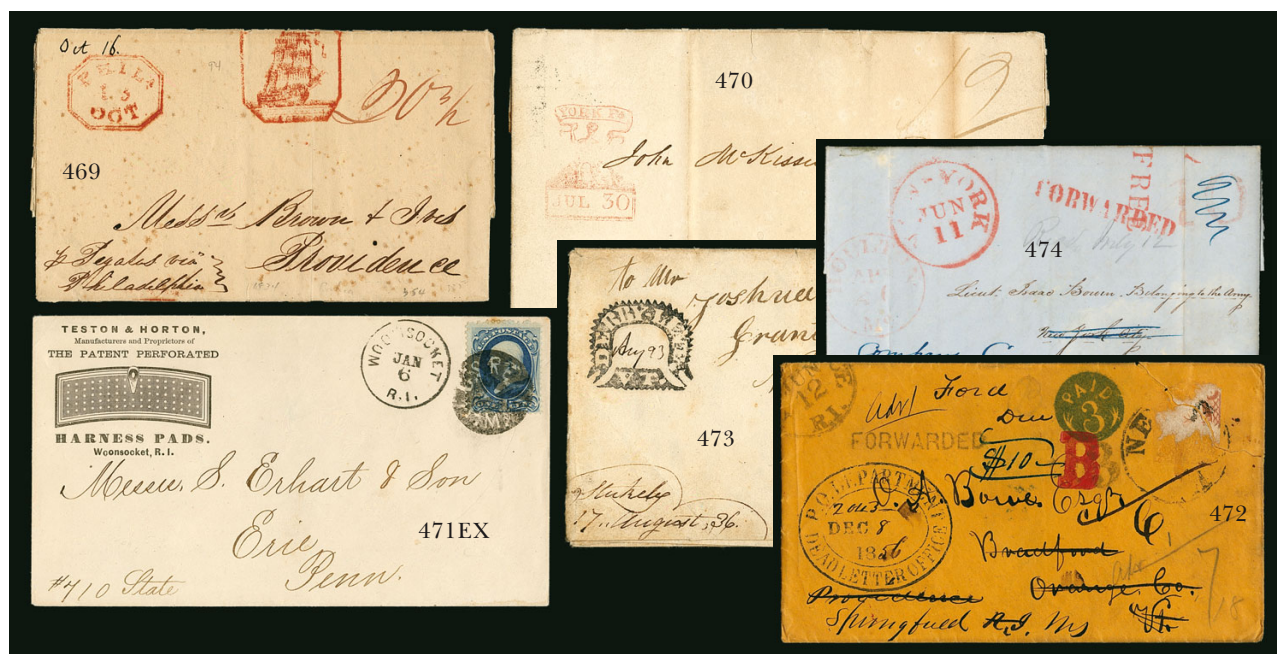 Oct 16.
PHILA
13
OCT
20 3/4
469
Messrs Brown & Ives
Providence
Philadelphia
470
YORK Pa
JUL 30
12
John McKissi
NEW-YORK
JUN
11
FORWARDED
474
Lieut. Isaac Bowen, Belonging to the Army
New York City
Company
TESTON & HORTON,
Manufacturers and Proprietors of
THE PATENT PERFORATED
HARNESS PADS.
Woonsocket, R. I.
WOONSOCKET
JAN
6
R.I.
Messrs. S. Erhart & Son
Erie
Penn.
#710 State
471EX
to Mr
Joshua
Gran
DENNIS
Aug 93
473
17 August, 36.
12
R.I.
Adv1
Ford
Due
PAID
3
FORWARDED
$10
B
NE
P.O. DEPARTMENT
DEC 8
1856
DEAD LETTER OFFICE
Bowen Esqr
472
Bradford
Orange Co.
Vt.
Providence
Springfield R.I. Ms
7
18